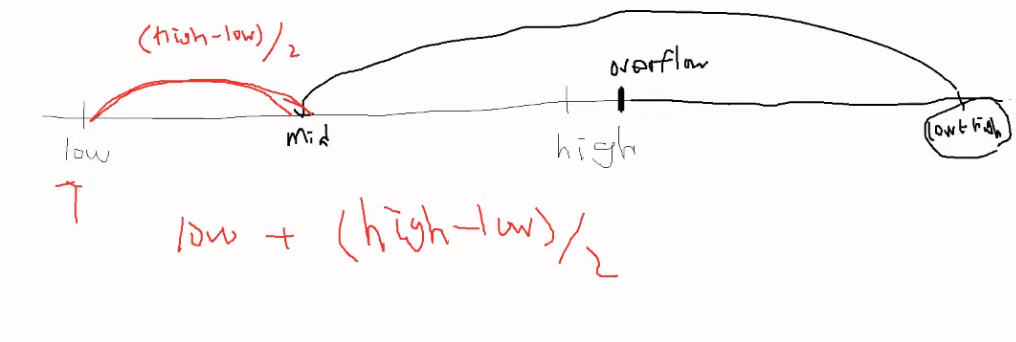 (high-low)/2
overflow
low
mid
high
low+high
low + (high-low)/2